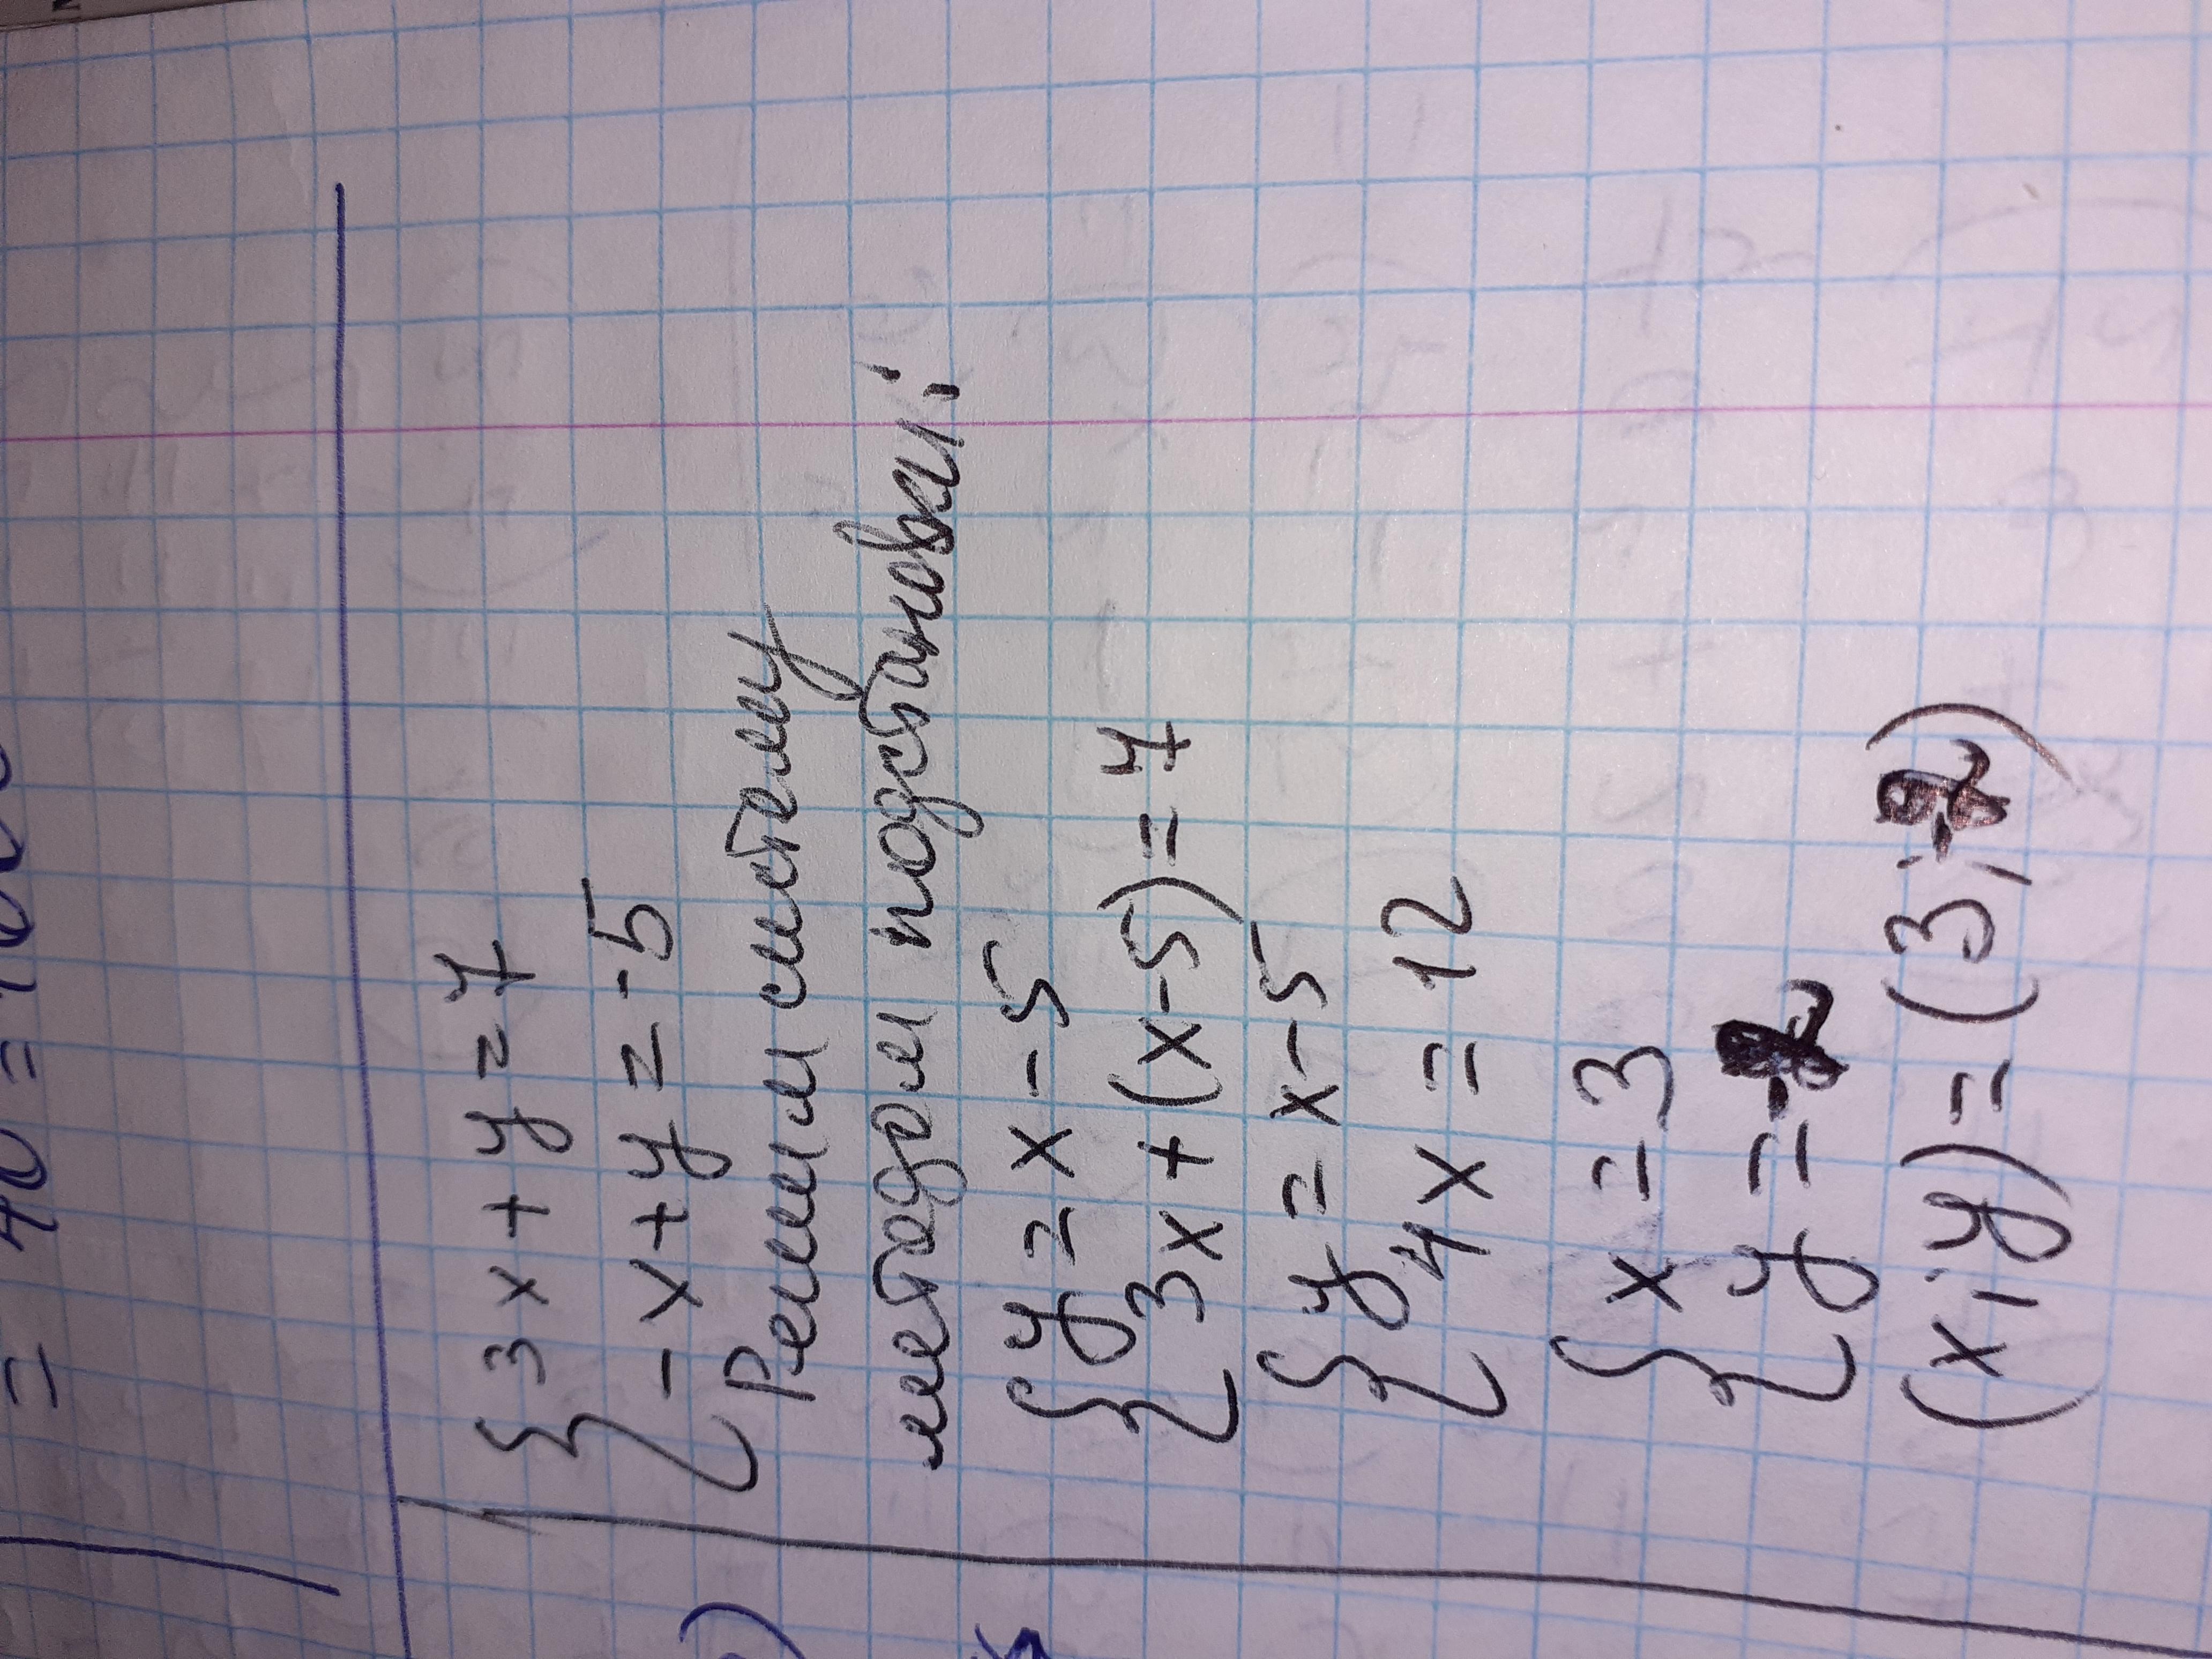 { 3x + y = 7
{ -x + y = -5
Решим систему
методом подстановки:
{ y = x - 5
{ 3x + (x-5) = 7
{ y = x - 5
{ 4x = 12
{ x = 3
{ y = -2
(x; y) = (3; -2)